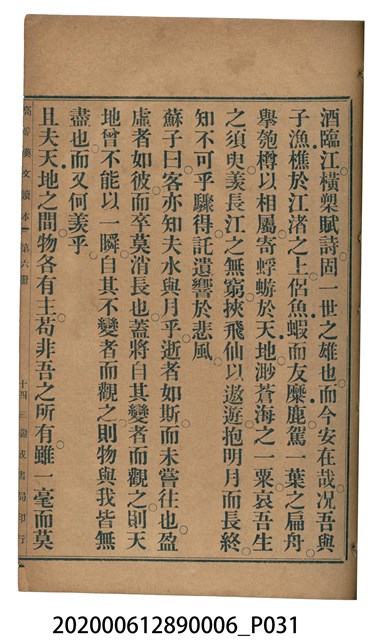 酒臨江橫槊賦詩固一世之雄也而今安在哉况吾與
子漁樵於江渚之上侶魚蝦而友麋鹿駕一葉之扁舟
舉匏樽以相屬寄蜉蝣於天地渺蒼海之一粟哀吾生
之須臾羨長江之無窮挾飛仙以遨遊抱明月而長終
知不可乎驟得託遺響於悲風
蘇子曰客亦知夫水與月乎逝者如斯而未嘗往也盈
虛者如彼而卒莫消長也蓋將自其變者而觀之則天
地曾不能以一瞬自其不變者而觀之則物與我皆無
盡也而又何羨乎
且夫天地之間物各有主苟非吾之所有雖一毫而莫
高等漢文讀本 第六冊
十四 書局印行
202000612890006_P031